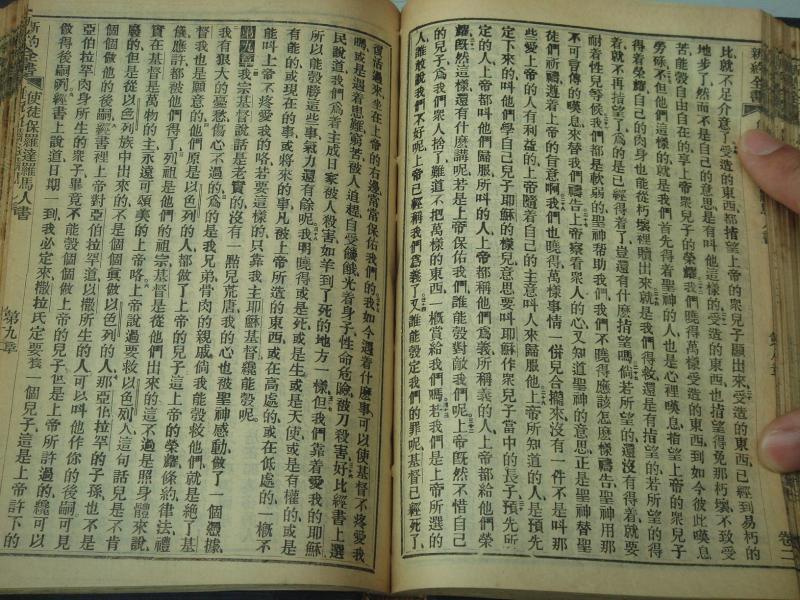 新約全書
卷二
比就不足介意了、受造的東西、都指望上帝的衆兒子顯出來、受造的東西、已經到易朽的
地步了、然而不是自己的意思、是有叫他這樣的、受造的東西、也指望得免那朽壞、不致受
苦、能彀自由自在的、享上帝衆兒子的榮耀、我們曉得萬樣受造的東西、到如今彼此嘆息
勞碌、不但他們這樣的、就是我們首先得着聖神的人、也是心裡嘆息、指望上帝的衆兒子
得着榮耀、自己的肉身、也能從朽壞裡贖出來、就是我們得救、還是有指望的、若所望的、得
着就不再指望了、爲的是已經得着了、豈還有什麽指望嗎、倘若所望的、還沒有得着、就要
耐着性兒等候、我們都是軟弱的、聖神帮助我們、我們不曉得應該怎麽樣禱告、聖神用那
不可言傳的嘆息、來替我們禱告、上帝察看衆人的心、又知道聖神的意思、正是聖神替聖
徒們祈禱、遵着上帝的旨意啊、我們也曉得萬樣事情、一併兒合攏來、沒有一件不是叫那
些愛上帝的人有利益的、上帝隨着自己的主意、叫人來歸服他、上帝所知道的人、是預先
定下來的、叫他們學自己兒子耶穌的樣兒、意思要叫耶穌作衆兒子當中的長子、預先所
定的人、上帝都叫他們歸服、所叫的人、上帝都稱他們爲義、所稱義的人、上帝都給他們榮
耀、旣然這樣、還有什麽講呢、若是上帝保佑我們、誰能彀對敵我們呢、上帝旣然不惜自己
的兒子、爲我們衆人捨了、難道不把萬樣的東西、一概賞給我們嗎、若我們是上帝所選的
人、誰敢說我們不好呢、上帝已經稱我們爲義了、又誰能彀定我們的罪呢、基督已經死了、
復活過來、坐在上帝的右邊、常常保佑我們的、我如今遇着什麽事、可以使基督不疼愛我
嗎、或是遇着患難、窮苦、被人追趕、自受饑餓、光着身子、性命危險、被刀殺害、好比經書上選
民說道、我們爲着主、成日家被人殺害、如羊到了死的地方一樣、但我們靠着愛我的耶穌
所以能彀勝這些事、氣力還有餘呢、我明曉得或是死、或是生、或是天使、或是有權的、或是
有能的、或現在的事、或將來的事、凡被上帝所造的東西、或在高處的、或在低處的、一概不
能叫上帝不疼愛我的咯、若要這樣的、只靠我主耶穌基督纔能彀呢、
第九章 我宗基督說話是老實的、沒有一點兒荒唐、我的心也被聖神感動、做了一個憑據、
我有狠大的憂愁、傷心不過的、爲的是我兄弟骨肉的親戚、倘我能彀救他們、就是絶了基
督、我也是願意的、他們原是以色列的人、都做了上帝的兒子、這上帝的榮耀、條約、律法、禮
儀、應許、都被他們得了、列祖是他們的祖宗、基督是從他們出來的、這不過是照身體來說、
實在基督是萬物的主、永遠可頌美的上帝咯、上帝說過要救以色列人、這句話兒、是不肯
廢的、但是從以色列族中出來的、不是個個眞做以色列的人、那亞伯拉罕的子孫、也不是
個個做他的後嗣、經書裡上帝對亞伯拉罕道、以撒所生的人、可以叫他作你的後嗣、可見
亞伯拉罕肉身所生的衆子、畢竟不能彀個個做上帝的兒子、但是上帝所許過的、纔可以
做得後嗣咧、經書上說道、日期一到、我必定來、撒拉氏定要養一個兒子、這是上帝許下的
新約全書
使徒保羅達羅馬人書
第九章